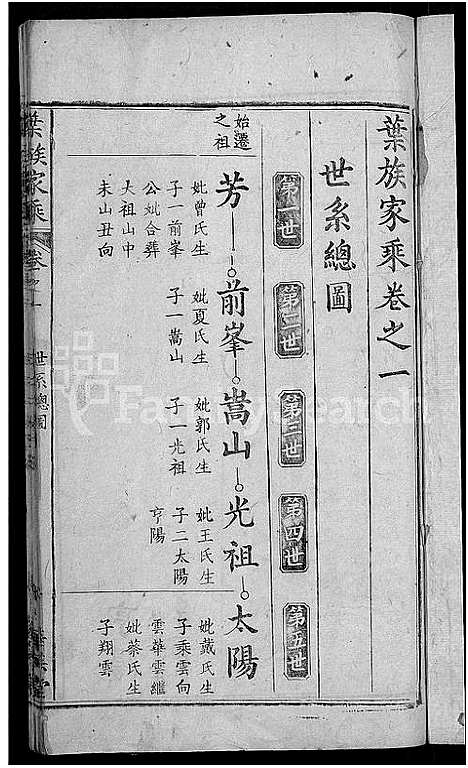 葉族家乘卷之一
世系總圖
第一世 第二世 第三世 第四世 第五世
始遷
之祖
芳 前峯 嵩山 光祖 太陽
妣曾氏生
子一前峯
公妣合葬
大祖山中
未山丑向
妣夏氏生
子一嵩山
妣郭氏生
子一光祖
妣王氏生
子二太陽
亨陽
妣戴氏生
子乘雲向
雲華雲繼
妣蔡氏生
子翔雲
葉族家乘
卷之一
世系總圖
FamilySearch